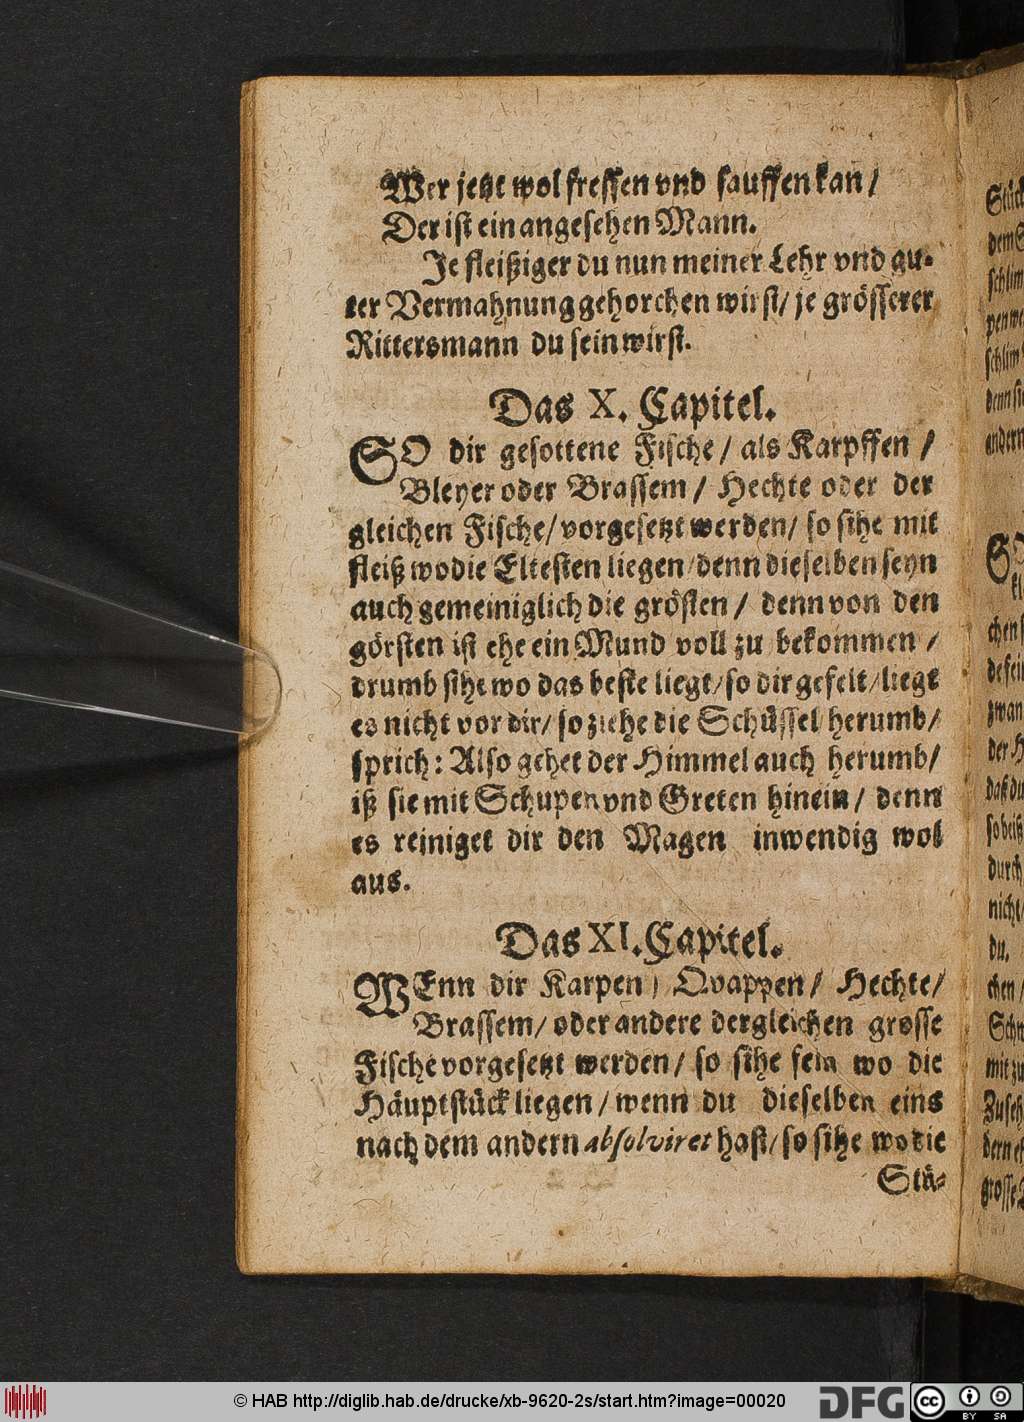 Wer jetzt wol fressen vnd sauffen kan /
Der ist ein angesehen Mann.
Je fleißiger du nun meiner Lehr vnd gu-
ter Vermahnung gehorchen wirst/ je grösserer
Rittersmann du sein wirst.
Das X. Capitel.
SO dir gesottene Fische / als Karpffen /
Bleyer oder Brassem / Hechte oder der
gleichen Fische/ vorgesetzt werden/ so sihe mit
fleiß wo die Eltesten liegen/ denn dieselben seyn
auch gemeiniglich die grösten / denn von den
görsten ist ehe ein Mund voll zu bekommen /
drumb sihe wo das beste liegt/ so dir gefelt/ liegt
es nicht vor dir/ so ziehe die Schüssel herumb/
sprich: Also gehet der Himmel auch herumb/
iß sie mit Schupen vnd Greten hinein / denn
es reiniget dir den Magen inwendig wol
aus.
Das XI. Capitel.
WEnn dir Karpen / Qvappen / Hechte/
Brassem/ oder andere dergleichen grosse
Fische vorgesetzt werden / so sihe fein wo die
Häuptstück liegen / wenn du dieselben eins
nach dem andern absolviret hast/ so sihe wo die
Stü-
Stück
dem
schlim
pen we
schlim
denn sie
andern
SO
chen
de sein
zwan
der H
daß du
so beiß
durch
nicht/
du.
chen /
Schn
mit zu
Zu seh
dern
grosse
© HAB http://diglib.hab.de/drucke/xb-9620-2s/start.htm?image=00020
DFG
cc
BY SA